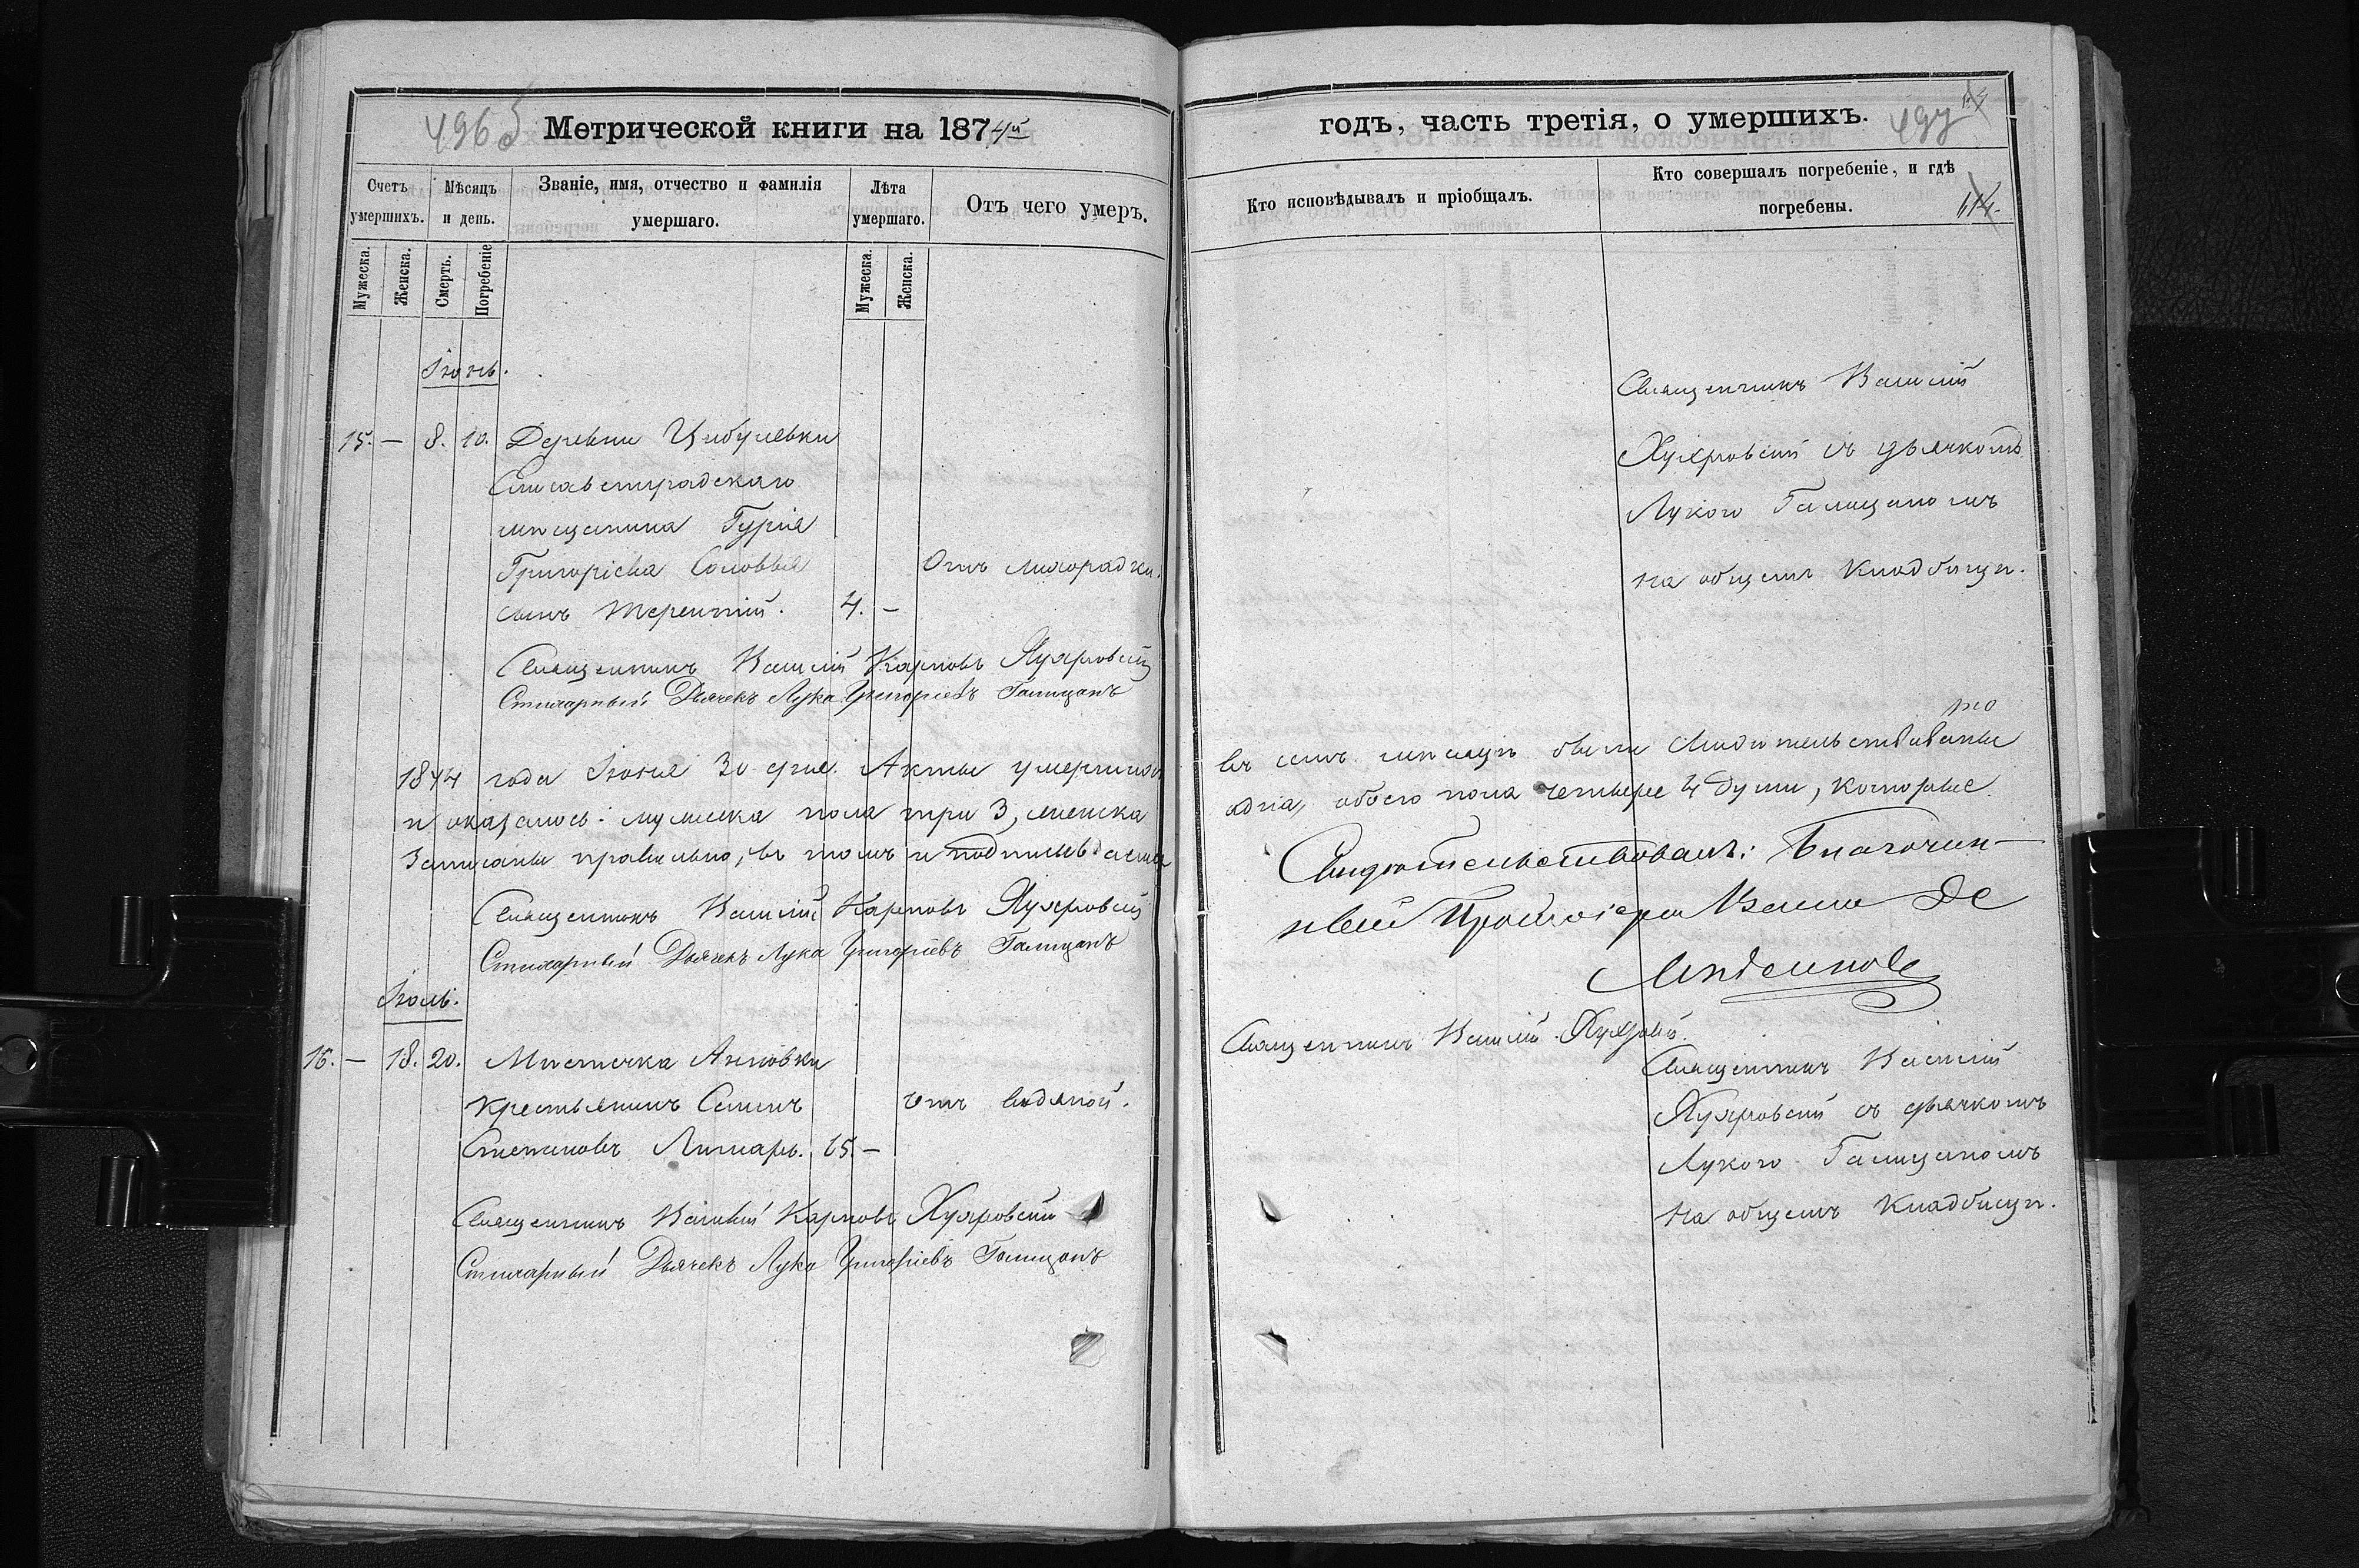 496 б Метрической книги на 1874й
Счетъ умершихъ.
Мѣсяцъ и день.
Званіе, имя, отчество и фамилія умершаго.
Лѣта умершаго.
Отъ чего умеръ.
Мужеска.
Женска.
Смерть.
Погребеніе
Мужеска.
Женска.
Іюнь.
15. — 8. 10. Деревни Цибулевки
Елисаветградскаго
мѣщанина Гурія
Григоріева Соловья
Отъ лихорадки.
сынъ Терентій. 4. —
Священникъ Василій Карповъ
Стихарный Дьячекъ Лука Григоріевъ Галицанъ
1874 года Іюня 30 дня. Акты умершихъ
и оказалось: мужеска пола три 3, женска
Записаны правильно, въ томъ и подписываемся
Священникъ Василій Карповъ
Стихарный Дьячекъ Лука Григоріевъ Галицанъ
Іюль.
16. — 18. 20. Мѣстечка Ановки
крестьянинъ Семенъ
Отъ водяной.
Степановъ Лимарь. 65. —
Священникъ Василій Карповъ
Стихарный Дьячекъ Лука Григоріевъ Галицанъ
годъ, часть третія, о умершихъ. 497
114.
Кто исповѣдывалъ и пріобщалъ.
Кто совершалъ погребеніе, и гдѣ погребены.
Священникъ Василій
съ дьячкомъ
Лукою Галицаномъ
на общемъ кладбищѣ.
въ семъ мѣсяцѣ были свидѣтельствованы
одна, обоего пола четыре 4 души, которые
Свидѣтельствовалъ: Благочин-
ный Протоіерей
Священникъ Василій
Священникъ Василій
съ дьячкомъ
Лукою Галицаномъ
на общемъ кладбищѣ.